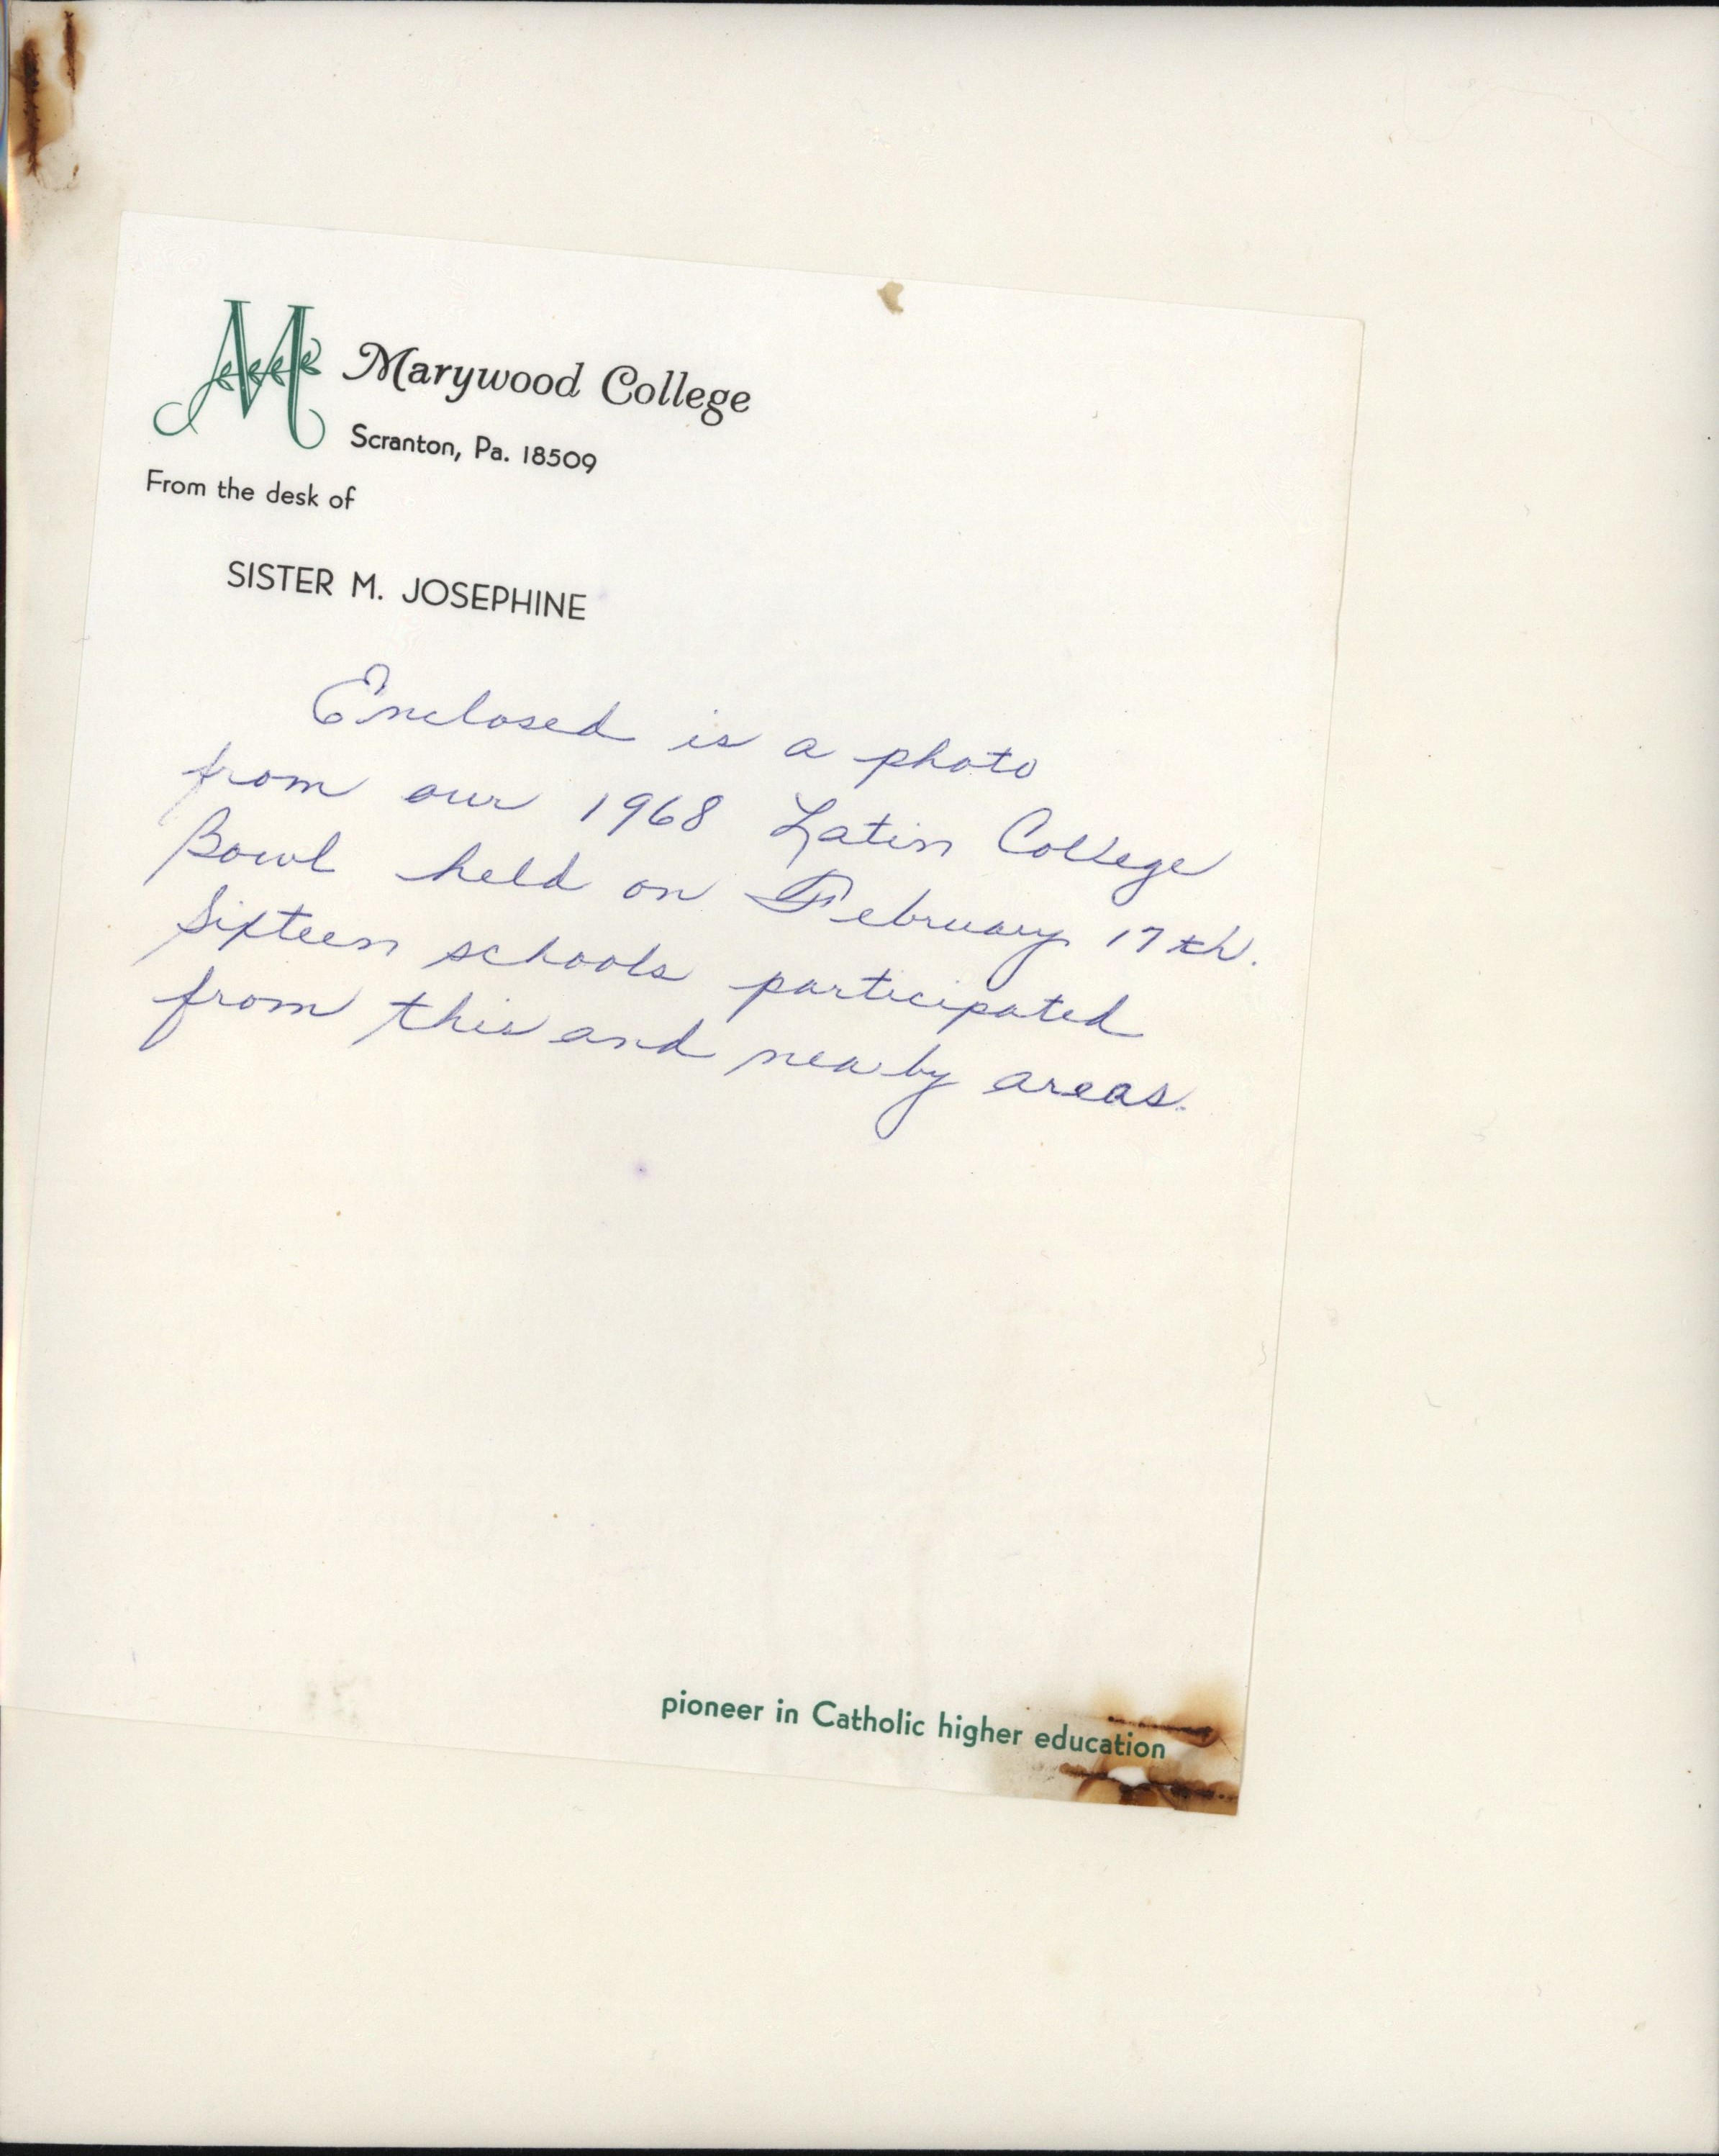 M Marywood College
Scranton, Pa. 18509
From the desk of
SISTER M. JOSEPHINE
Enclosed is a photo
from our 1968 Latin College
Bowl held on February 17th.
Sixteen schools participated
from this and nearby areas.
pioneer in Catholic higher education